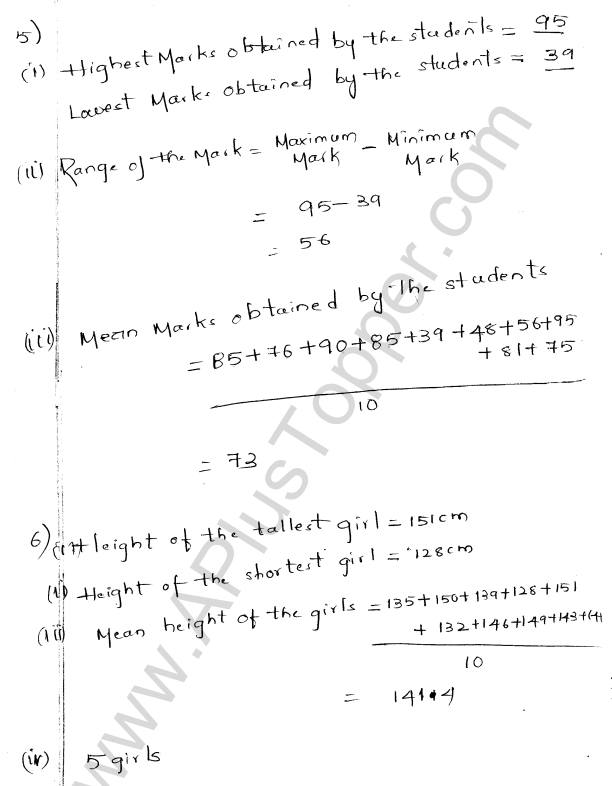 5)
(i) Highest Marks obtained by the students = 95
Lowest Marks obtained by the students = 39
(ii) Range of the Mark = Maximum Mark - Minimum Mark
= 95-39
= 56
(iii) Mean Marks obtained by the students
= 85+76+90+85+39+48+56+95
+81+75
10
= 73
6) (i) Height of the tallest girl = 151cm
(ii) Height of the shortest girl = 128cm
(iii) Mean height of the girls = 135+150+139+128+151
+ 132+146+149+143+141
10
= 141.4
(iv) 5 girls
www.APlusTopper.com